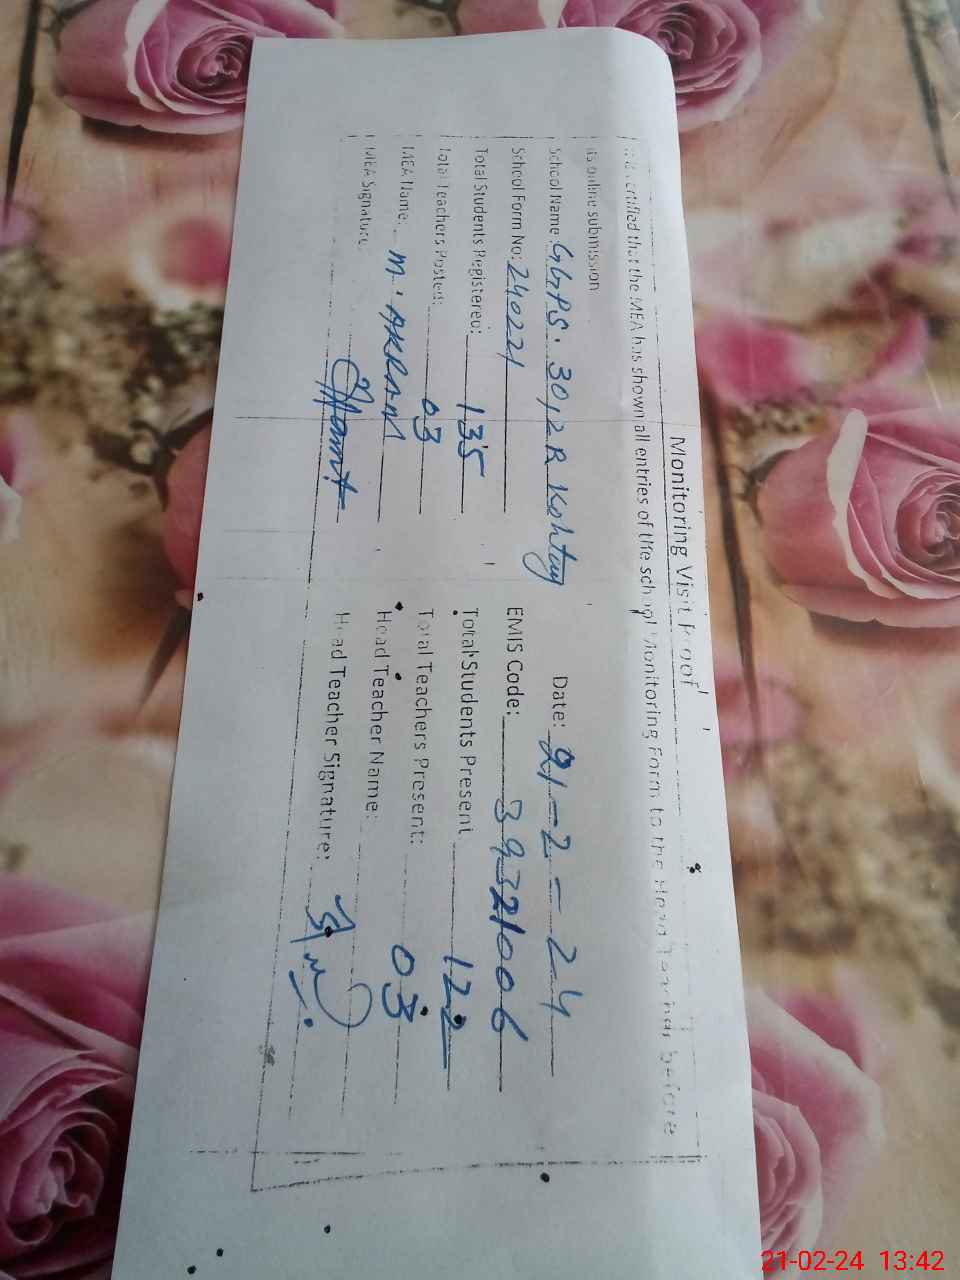 Monitoring Visit Proof
It is certified that the MEA has shown all entries of the school Monitoring Form to the Head Teacher before
its online submission
School Name: GGPS. 30/2R Date: 21-2-24
School Form No: 240221 EMIS Code: 39321006
Total Students Registered: 135 Total Students Present 122
Total Teachers Posted: 03 Total Teachers Present: 03
MEA Name: M. AKRAM Head Teacher Name:
MEA Signature: Head Teacher Signature:
21-02-24 13:42